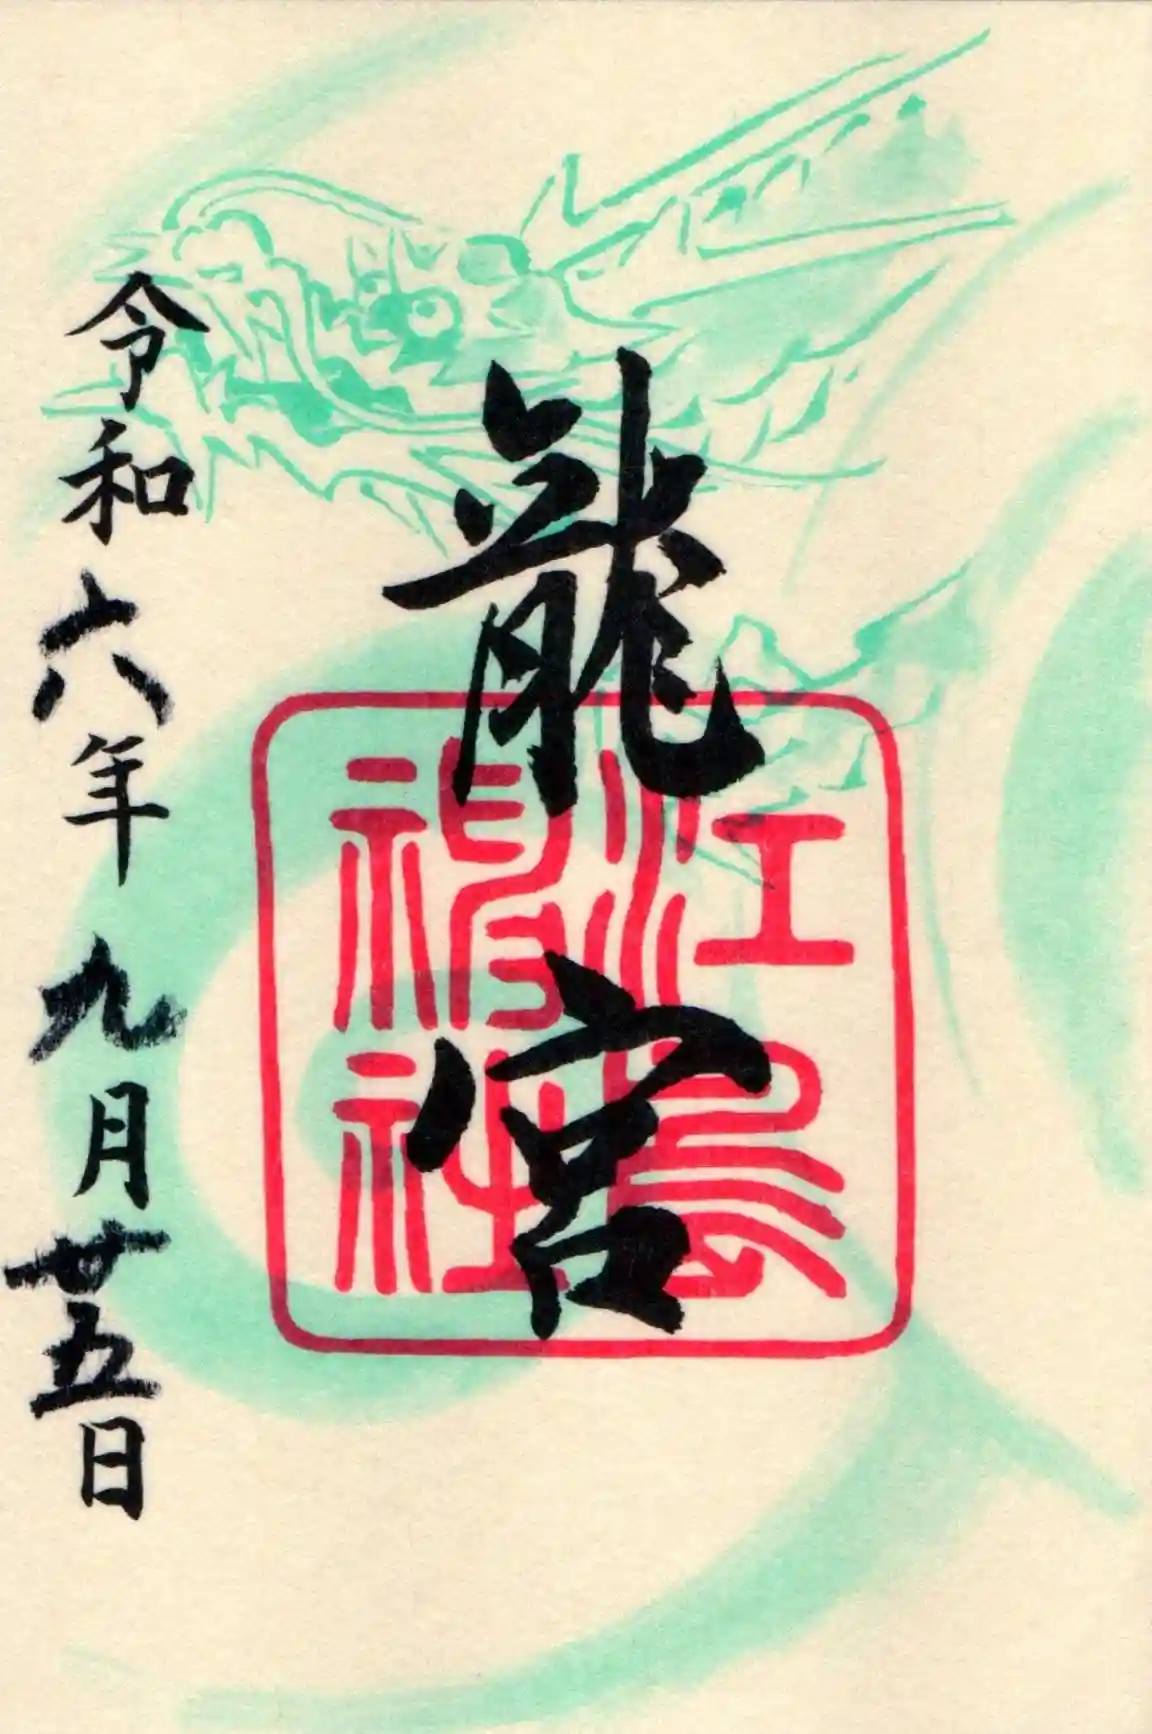 龍宮
江島
神社
令和六年九月廿五日